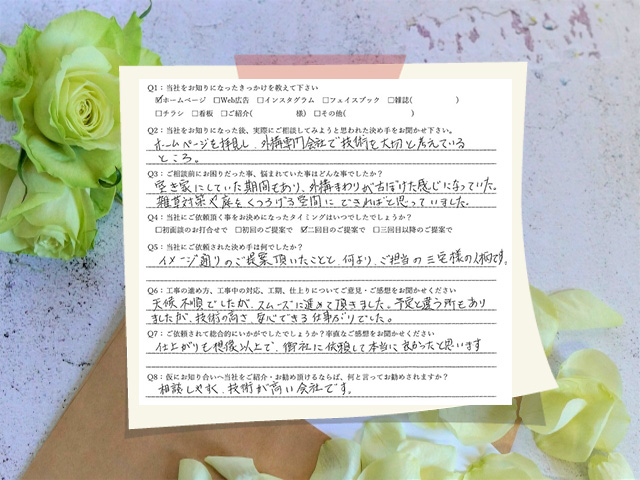 Q1：当社をお知りになったきっかけを教えて下さい
☑ホームページ □Web広告 □インスタグラム □フェイスブック □雑誌( )
□チラシ □看板 □ご紹介( 様) □その他( )
Q2：当社をお知りになった後、実際にご相談してみようと思われた決め手をお聞かせ下さい。
ホームページを拝見し、外構専門会社で技術を大切と考えている
ところ。
Q3：ご相談前にお困りだった事、悩まれていた事はどんな事でしたか？
空き家にしていた期間もあり、外構まわりが古ぼけた感じになっていた。
雑草対策や庭をくつろげる空間にできればと思っていました。
Q4：当社にご依頼頂く事をお決めになったタイミングはいつでしたでしょうか？
□初面談のお打合せで □初回のご提案で ☑二回目のご提案で □三回目以降のご提案で
Q5：当社にご依頼された決め手は何でしたか？
イメージ通りのご提案頂いたことと、何より、ご担当の三宅様の人柄です。
Q6：工事の進め方、工事中の対応、工期、仕上りについてご意見・ご感想をお聞かせください
天候不順でしたが、スムーズに進めて頂きました。予定と違う所もあり
ましたが、技術の高さ、安心できる仕事がりでした。
Q7：ご依頼されて総合的にいかがでしたでしょうか？率直なご感想をお聞かせください
仕上がりも想像以上で、御社に依頼して本当に良かったと思います
Q8：仮にお知り合いへ当社をご紹介・お勧め頂けるならば、何と言ってお勧めされますか？
相談しやすく、技術が高い会社です。